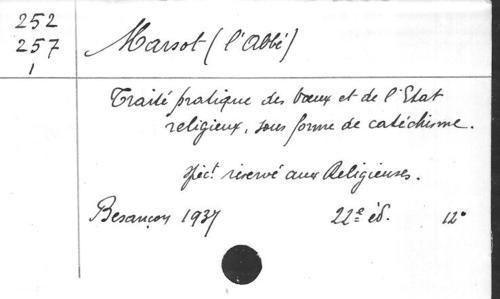 252
257
1
Marsot (l'Abbé)
Traité pratique des vœux et de l'Etat
religieux, sous forme de catéchisme.
spéct réservé aux Religieuses.
Besançon 1937 22e éd. 12°